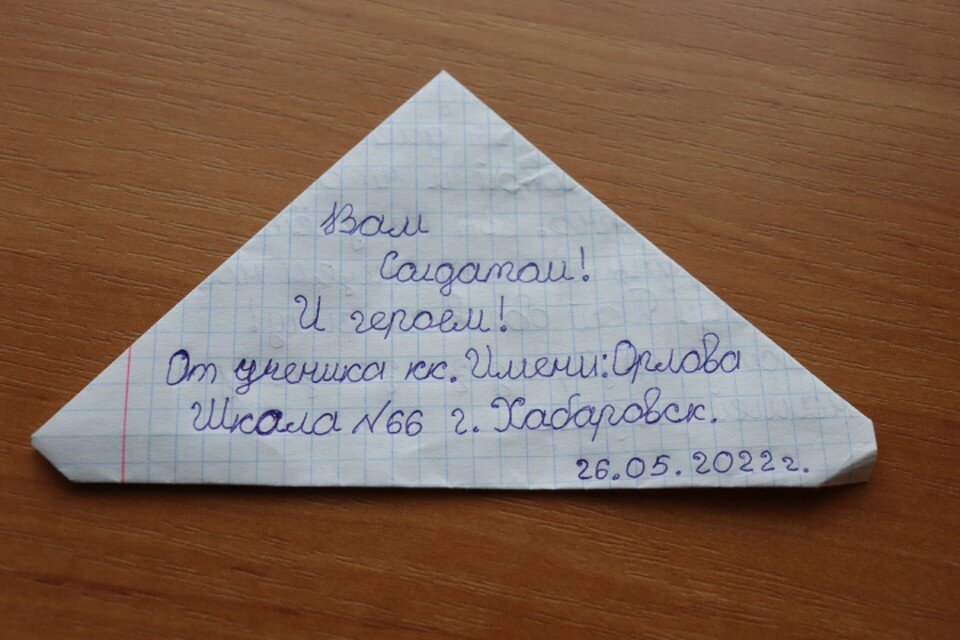 Вам
Солдатам!
И героем!
От ученика кк. Имени: Орлова
Школа №66 г. Хабаровск.
26.05.2022г.